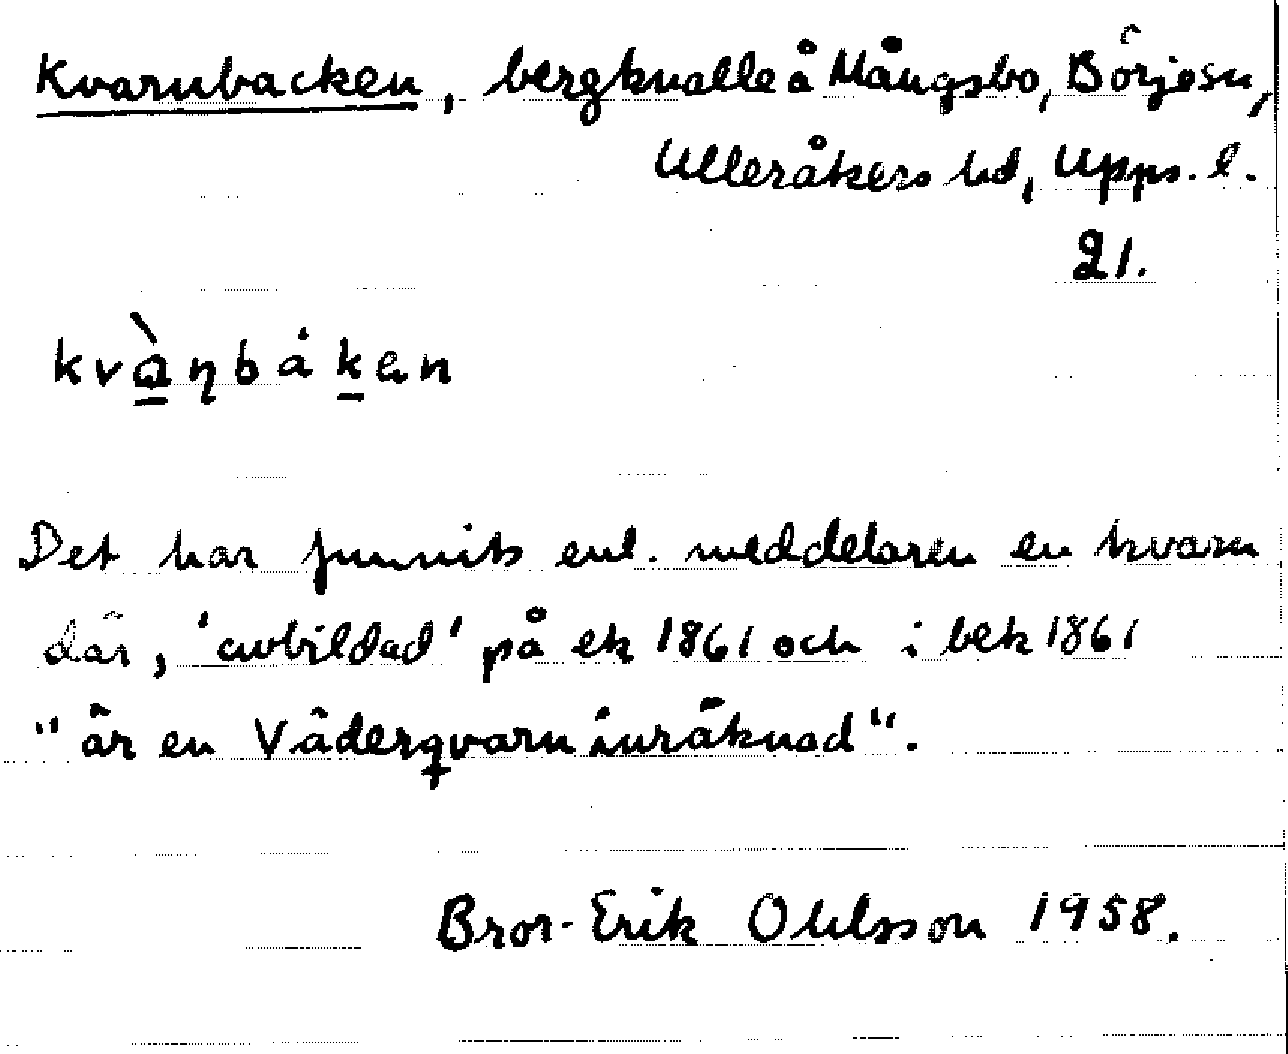 Kvarnbacken, bergknalle å Mångsbo, Börje sn,
Ulleråkers hd, Upps. l.
21.
kvà̱ɳbåḵən
Det har funnits enl. meddelaren en kvarn
där, 'avbildad' på ek 1861 och i bek 1861
"är en Väderqvarn inräknad".
Bror-Erik Ohlsson 1958.